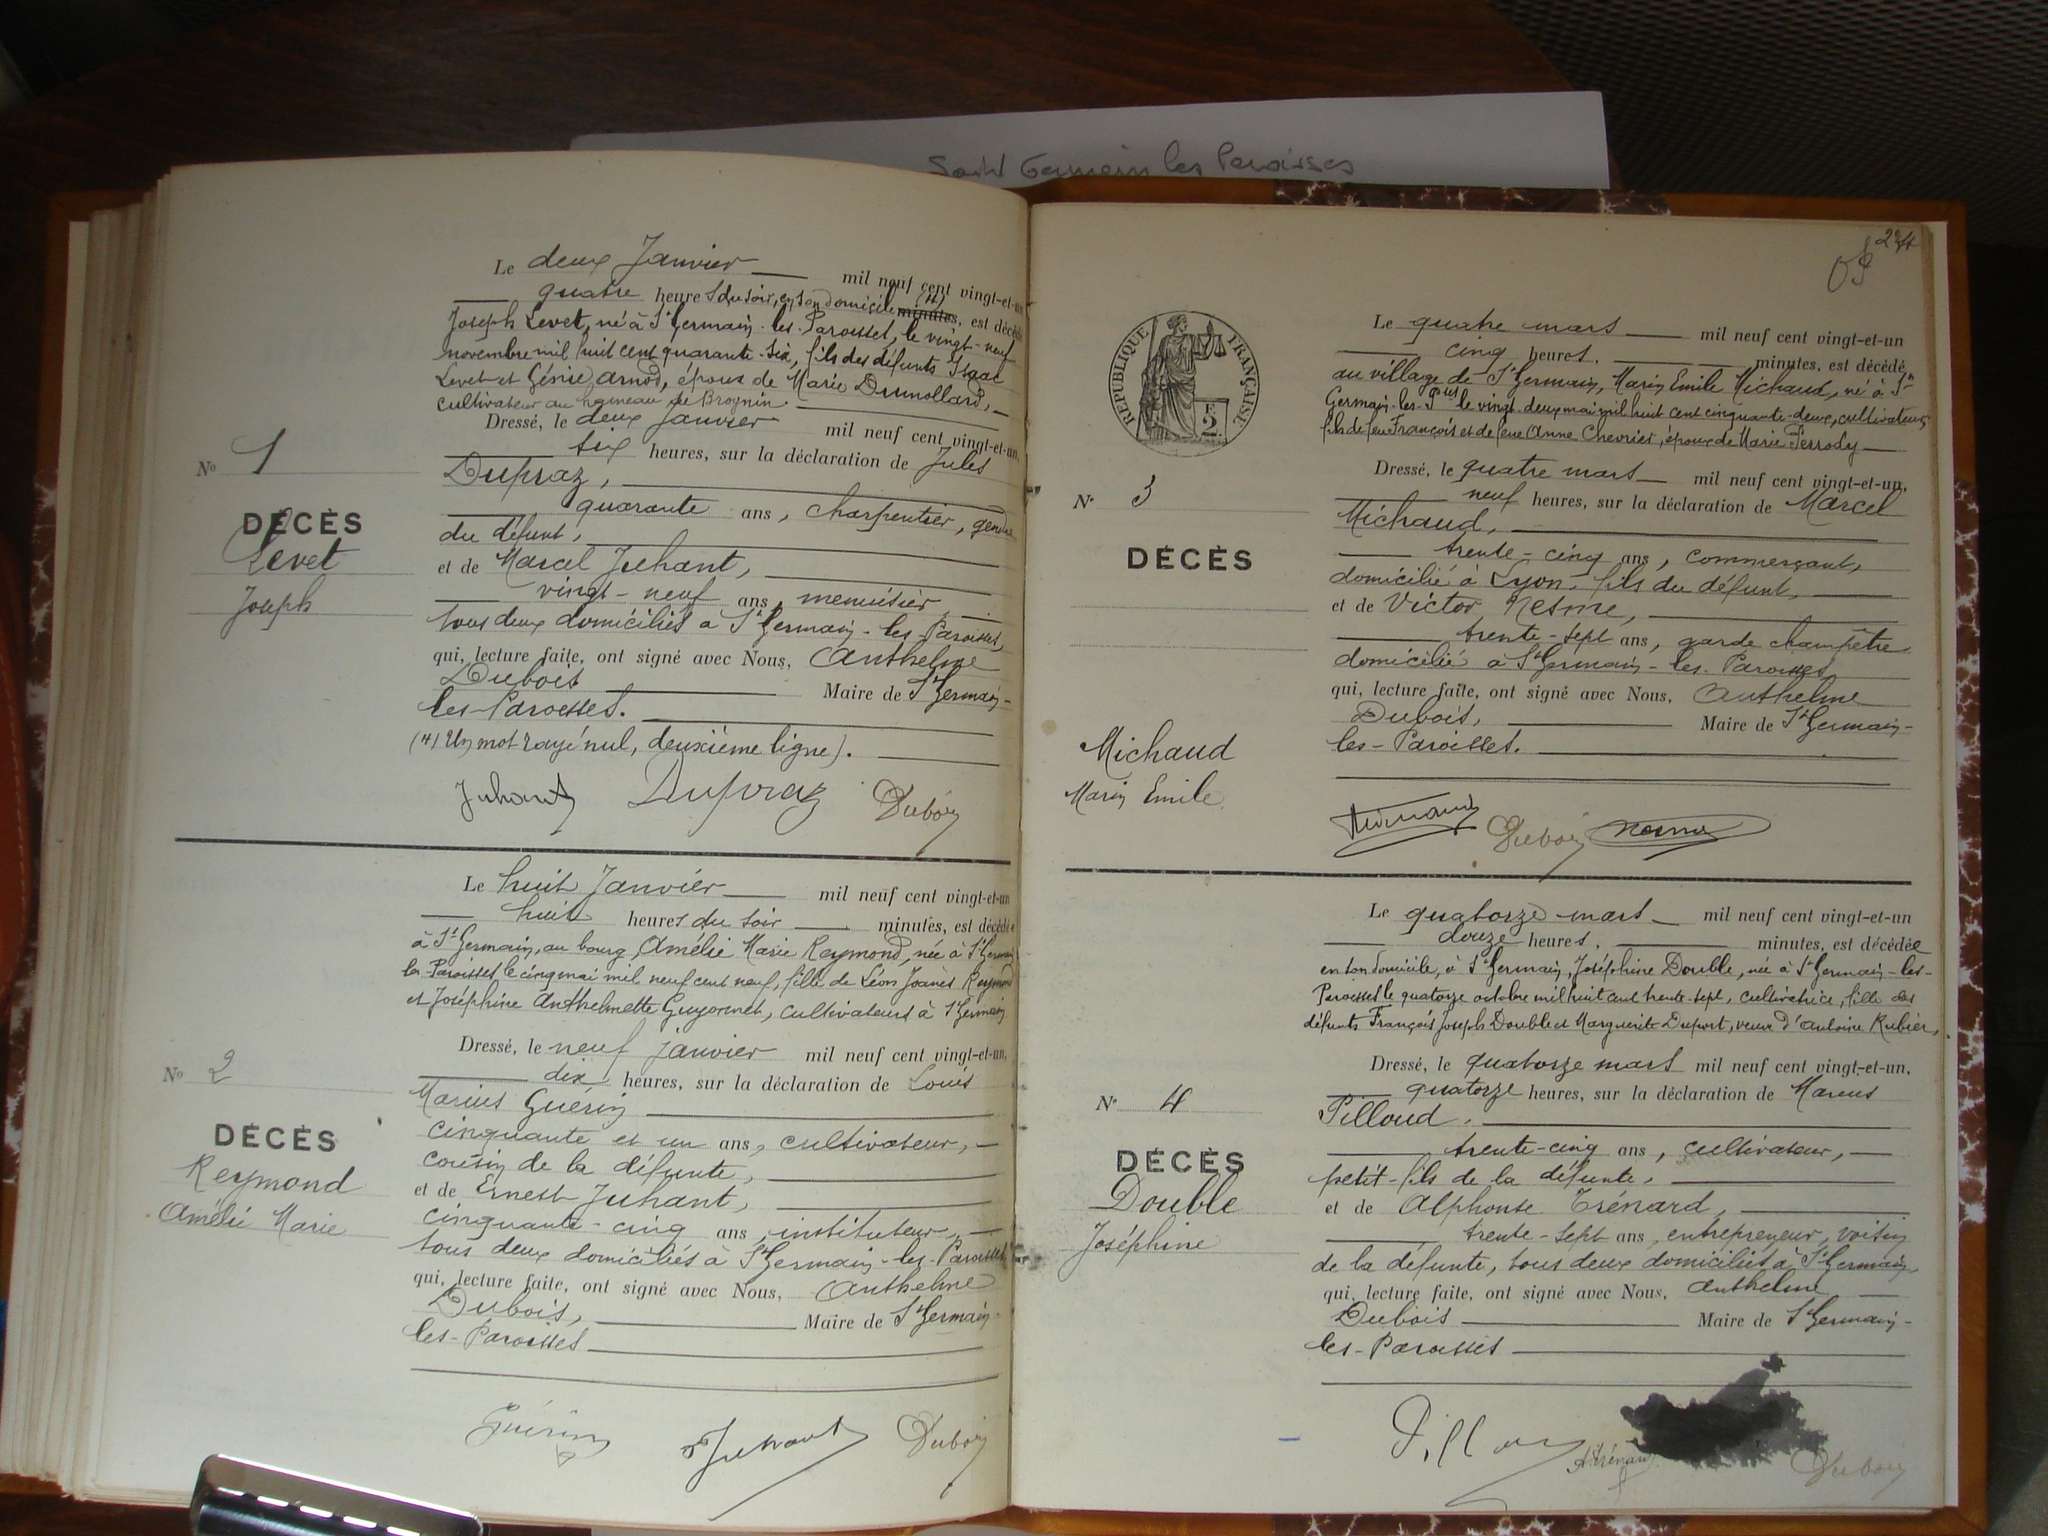 Saint Germain les Paroisses
Le deux Janvier mil neuf cent vingt-et-un
quatre heures du soir, en son domicile (4) minutes, est décédé
Joseph Levet, né à St Germain-les-Paroisses, le vingt-neuf
novembre mil huit cent quarante-six, fils des défunts Isaac
Levet et Génie Arnod, époux de Marie Dumollard,
cultivateur au hameau de Brognin
Dressé, le deux Janvier mil neuf cent vingt-et-un,
six heures, sur la déclaration de Jules
Dupraz,
quarante ans, charpentier, gendre
du défunt,
et de Marcel Juhant,
vingt-neuf ans, menuisier,
tous deux domiciliés à St Germain-les-Paroisses,
qui, lecture faite, ont signé avec Nous, Anthelme
Dubois Maire de St Germain-
les-Paroisses.
(4) Un mot rayé nul, deuxième ligne).
Juhant Dupraz Dubois
No 1
DÉCÈS
Levet
Joseph
Le huit Janvier mil neuf cent vingt-et-un
huit heures du soir minutes, est décédée
à St Germain, au bourg, Amélie Marie Reymond, née à St Germain
les-Paroisses le cinq mai mil neuf cent neuf, fille de Léon Joanès Reymond
et Joséphine Anthelmette Guyonnet, cultivateurs à St Germain
Dressé, le neuf janvier mil neuf cent vingt-et-un,
dix heures, sur la déclaration de Louis
Marius Guérin
cinquante et un ans, cultivateur,
cousin de la défunte,
et de Ernest Juhant,
cinquante-cinq ans, instituteur,
tous deux domiciliés à St Germain-les-Paroisses
qui, lecture faite, ont signé avec Nous, Anthelme
Dubois, Maire de St Germain-
les-Paroisses
Guérin Juhant Dubois
No 2
DÉCÈS
Reymond
Amélie Marie
RÉPUBLIQUE FRANÇAISE
2
Le quatre mars mil neuf cent vingt-et-un
cinq heures. minutes, est décédé
au village de St Germain, Marin Emile Michaud, né à St
Germain-les-Pses le vingt-deux mai mil huit cent cinquante-deux, cultivateur,
fils de feu François et de feue Anne Chevrier, époux de Marie Perrody
Dressé, le quatre mars mil neuf cent vingt-et-un,
neuf heures, sur la déclaration de Marcel
Michaud,
trente-cinq ans, commerçant,
domicilié à Lyon, fils du défunt,
et de Victor Nesme,
trente-sept ans, garde champêtre
domicilié à St Germain-les-Paroisses
qui, lecture faite, ont signé avec Nous, Anthelme
Dubois, Maire de St Germain-
les-Paroisses.
Dubois Nesme
No 3
DÉCÈS
Michaud
Marin Emile
Le quatorze mars mil neuf cent vingt-et-un
douze heures. minutes, est décédée
en son domicile, à St Germain, Joséphine Double, née à St Germain-les-
Paroisses le quatorze octobre mil huit cent trente-sept, cultivatrice, fille des
défunts François Joseph Double et Marguerite Duport, veuve d'Antoine Rubier,
Dressé, le quatorze mars mil neuf cent vingt-et-un,
quatorze heures, sur la déclaration de Marcus
Pilloud,
trente-cinq ans, cultivateur,
petit-fils de la défunte,
et de Alphonse Trénard,
trente-sept ans, entrepreneur, voisin
de la défunte, tous deux domiciliés à St Germain,
qui, lecture faite, ont signé avec Nous, Anthelme
Dubois Maire de St Germain-
les-Paroisses
Pilloud A Trénard Dubois
No 4
DÉCÈS
Double
Joséphine